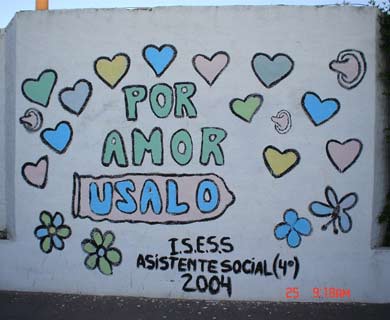 POR
AMOR
USALO
I.S.E.S.S
ASISTENTE SOCIAL (4º)
2004
25 9:18AM